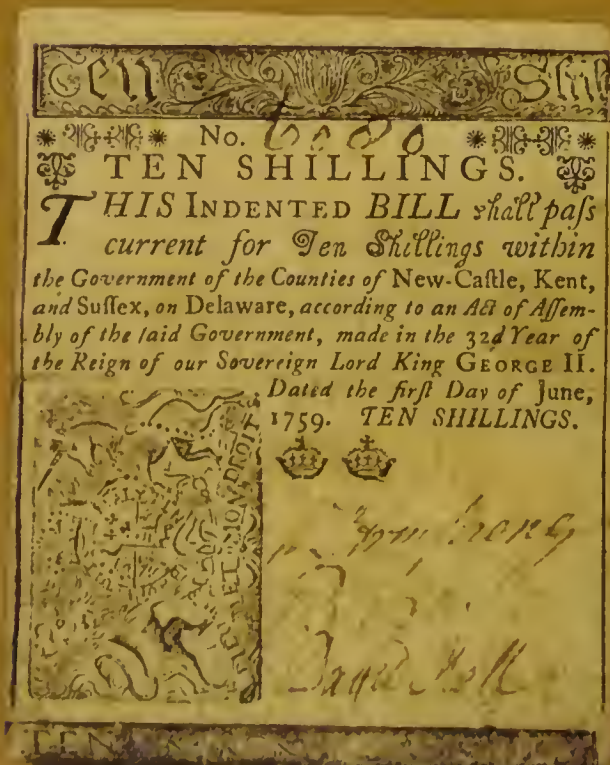 Ten Shil
No. 6080
TEN SHILLINGS.
THIS INDENTED BILL ſhall paſs
current for Ten Shillings within
the Government of the Counties of New-Caſtle, Kent,
and Suſſex, on Delaware, according to an Act of Aſſem-
bly of the ſaid Government, made in the 32d Year of
the Reign of our Sovereign Lord King GEORGE II.
Dated the firſt Day of June,
1759. TEN SHILLINGS.
DIEU ET MON DROIT
TEN